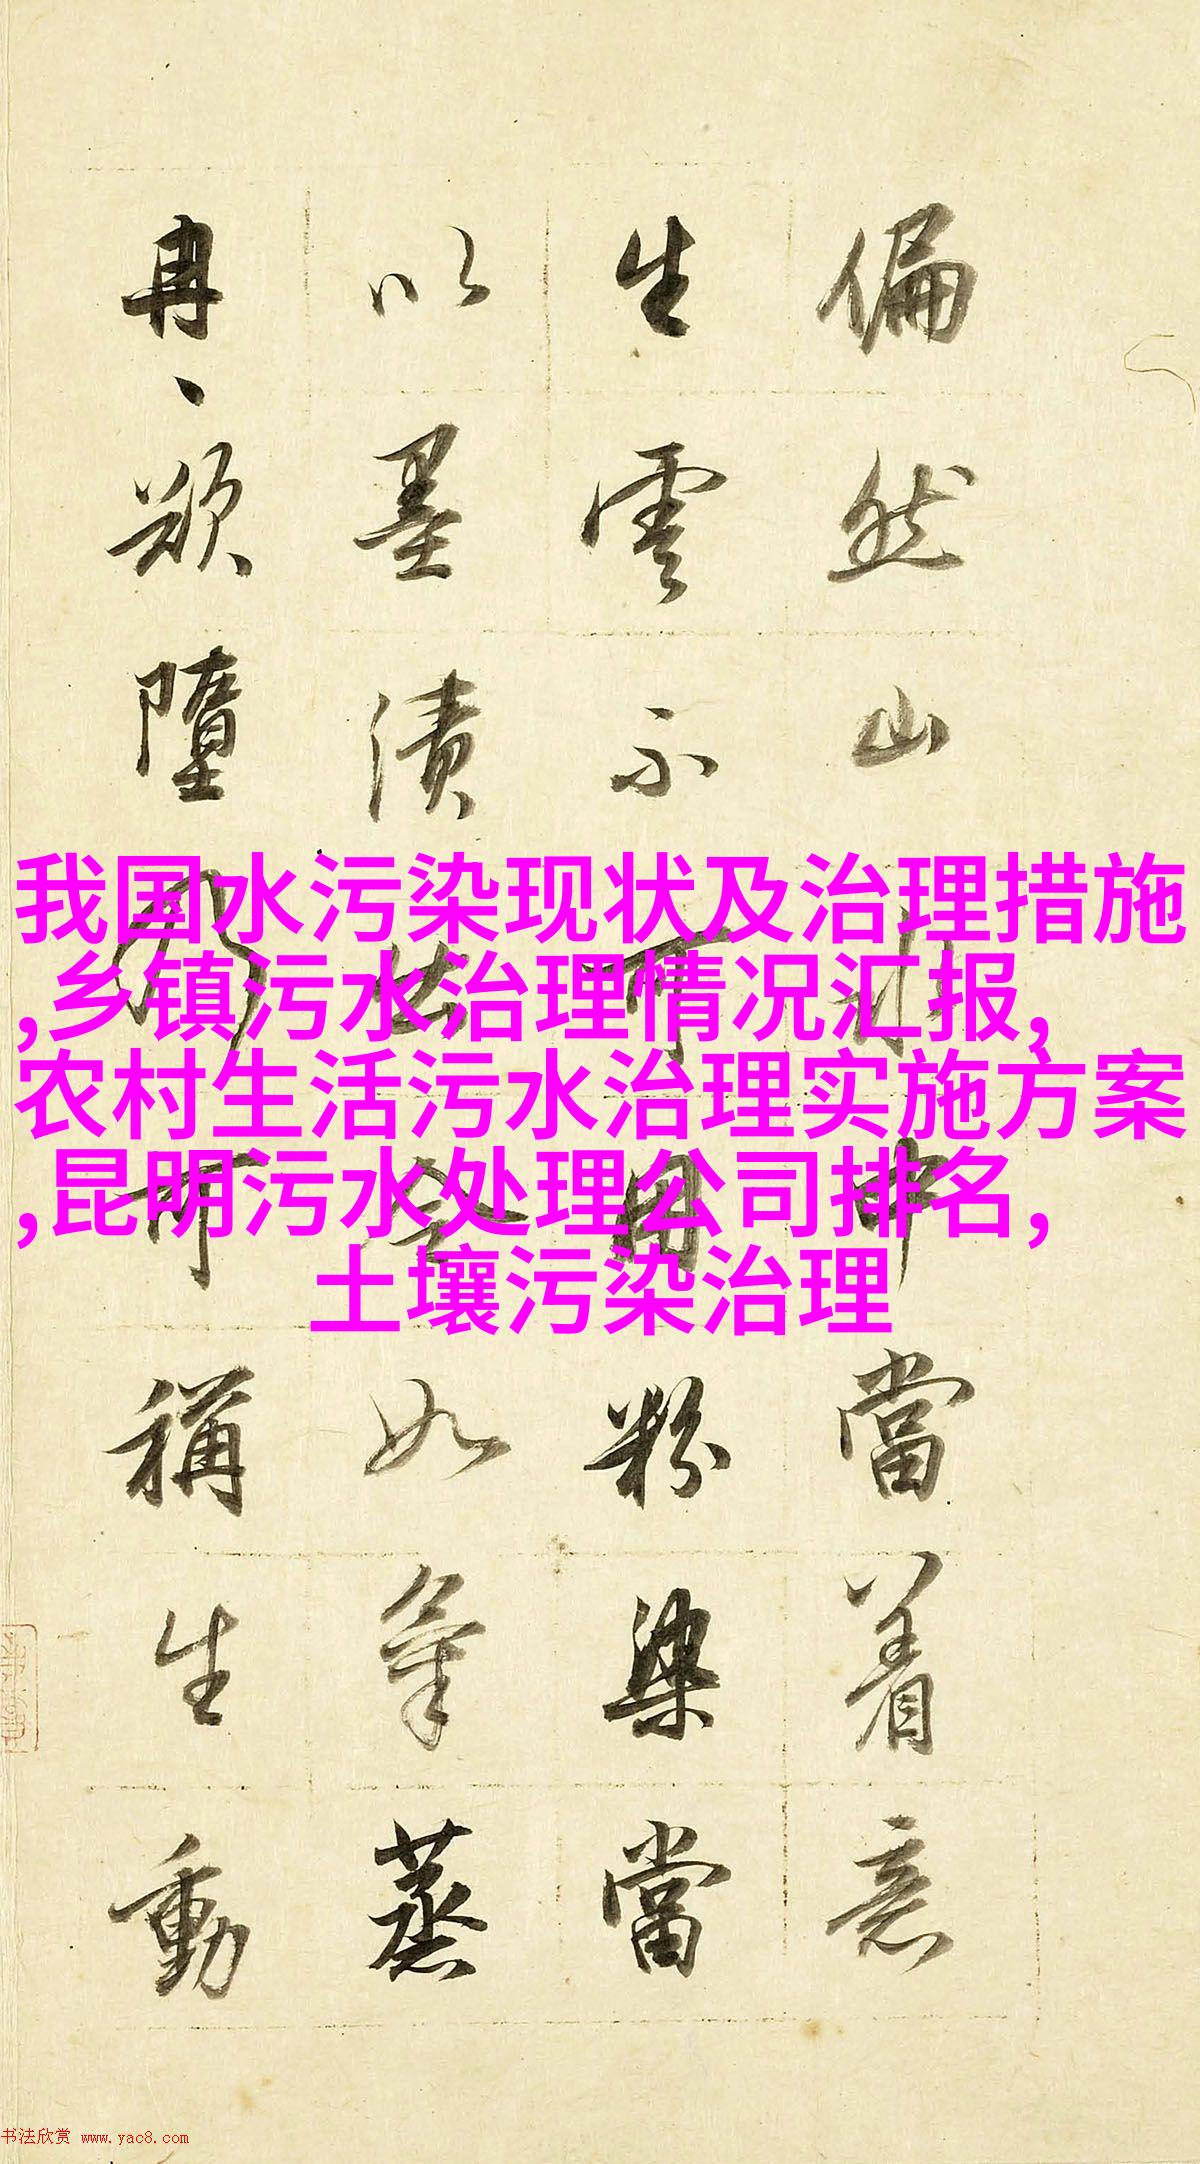 偏然山水中當着意
生雲不可用粉染當
以墨漬出令如氣蒸
冉、欲墮乃可稱生動
我国水污染现状及治理措施
,乡镇污水治理情况汇报,
农村生活污水治理实施方案
,昆明污水处理公司排名,
土壤污染治理
书法欣赏 www.yac8.com